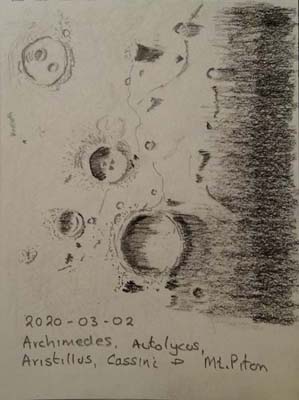 2020-03-02
Archimedes, Autolycos,
Aristillus, Cassini D Mt. Piton